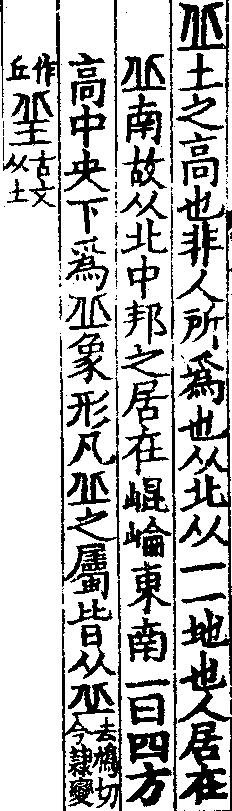 丠土之高也非人所爲也从北从一一地也人居在
丠南故从北中邦之居在崐崘東南一曰四方
高中央下爲丠象形凡丠之屬皆从丠去鳩切今隸變
作丘𡊣古文从土